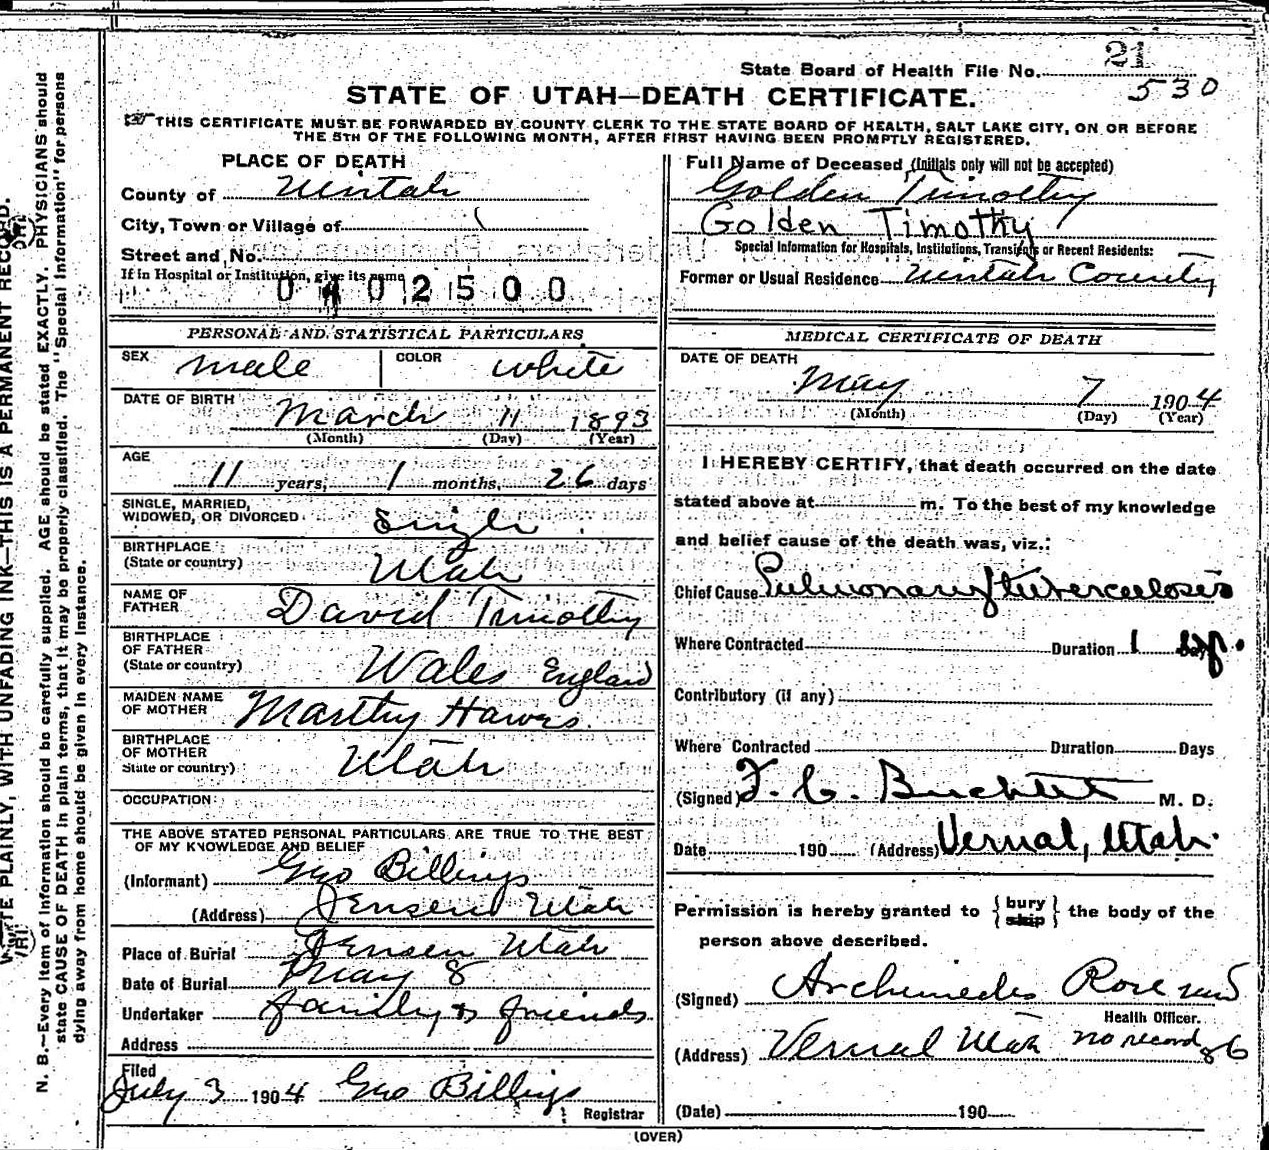 21
State Board of Health File No. 530
STATE OF UTAH—DEATH CERTIFICATE.
THIS CERTIFICATE MUST BE FORWARDED BY COUNTY CLERK TO THE STATE BOARD OF HEALTH, SALT LAKE CITY, ON OR BEFORE
THE 5TH OF THE FOLLOWING MONTH, AFTER FIRST HAVING BEEN PROMPTLY REGISTERED.
PLACE OF DEATH
County of Uintah
City, Town or Village of
Street and No.
If in Hospital or Institution, give its name
0402500
Full Name of Deceased (Initials only will not be accepted)
Golden Timothy
Golden Timothy
Special Information for Hospitals, Institutions, Transients or Recent Residents:
Former or Usual Residence Uintah County
PERSONAL AND STATISTICAL PARTICULARS
SEX male COLOR white
DATE OF BIRTH
March 11 1893
(Month) (Day) (Year)
AGE
11 years, 1 months, 26 days
SINGLE, MARRIED,
WIDOWED, OR DIVORCED Single
BIRTHPLACE
(State or country) Utah
NAME OF
FATHER David Timothy
BIRTHPLACE
OF FATHER
(State or country) Wales England
MAIDEN NAME
OF MOTHER Marthy Hawes
BIRTHPLACE
OF MOTHER
State or country) Utah
OCCUPATION
THE ABOVE STATED PERSONAL PARTICULARS ARE TRUE TO THE BEST
OF MY KNOWLEDGE AND BELIEF
(Informant) Geo Billings
(Address) Jensen Utah
Place of Burial Jensen Utah
Date of Burial May 8
Undertaker family & friends
Address
Filed
July 3 1904 Geo Billings
Registrar
MEDICAL CERTIFICATE OF DEATH
DATE OF DEATH
May 7 1904
(Month) (Day) (Year)
I HEREBY CERTIFY, that death occurred on the date
stated above at m. To the best of my knowledge
and belief cause of the death was, viz.:
Chief Cause Pulmonary tuberculosis
Where Contracted Duration 1
Contributory (if any)
Where Contracted Duration Days
(Signed) F. C. M. D.
Date 190 (Address) Vernal, Utah.
Permission is hereby granted to { bury ship } the body of the
person above described.
(Signed) Archimedes Rose
Health Officer.
(Address) Vernal Utah no record 86
(Date) 190
(OVER)
WRITE PLAINLY, WITH UNFADING INK—THIS IS A PERMANENT RECORD.
N. B.—Every item of information should be carefully supplied. AGE should be stated EXACTLY. PHYSICIANS should
state CAUSE OF DEATH in plain terms, that it may be properly classified. The "Special Information" for persons
dying away from home should be given in every instance.